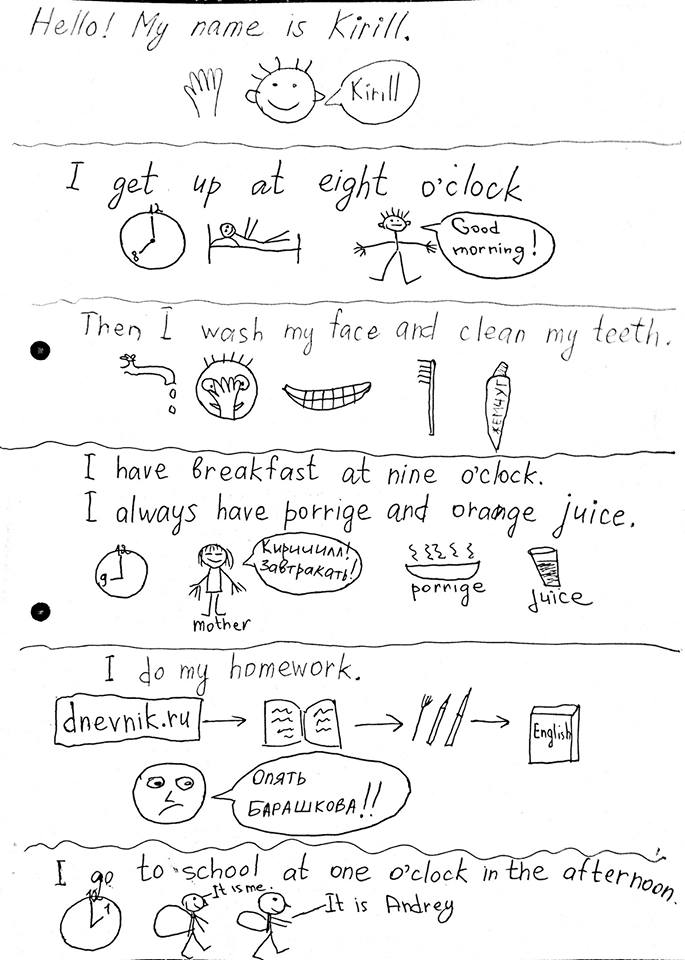 Hello! My name is Kirill.
Kirill
I get up at eight o'clock
12
8
Good
morning!
Then I wash my face and clean my teeth.
ЖЕМЧУГ
I have breakfast at nine o'clock.
I always have porrige and orange juice.
12
9
Кирииилл!
Завтракать!
mother
porrige
juice
I do my homework.
dnevnik.ru
English
Опять
БАРАШКОВА!!
I go to school at one o'clock in the afternoon.
12
1
It is me.
It is Andrey